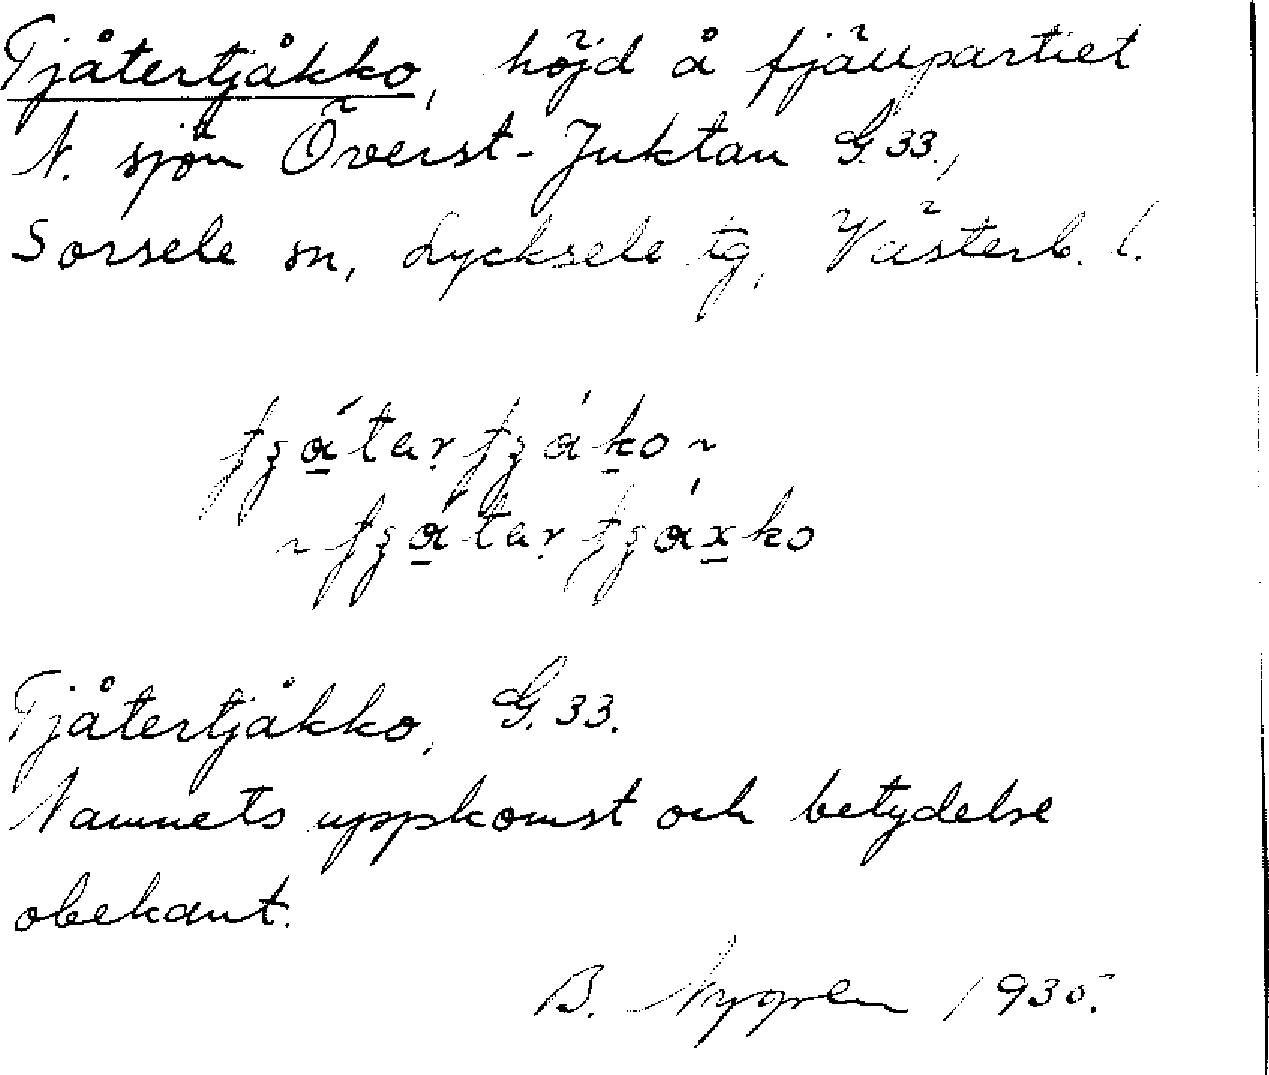 Tjåtertjåkko, höjd å fjällpartiet
N. sjön Överst-Juktan G. 33.,
Sorsele sn, Lycksele tg, Västerb. l.
Tjåtertjåkko, G. 33.
Namnets uppkomst och betydelse
obekant.
B. Nygren 1935.